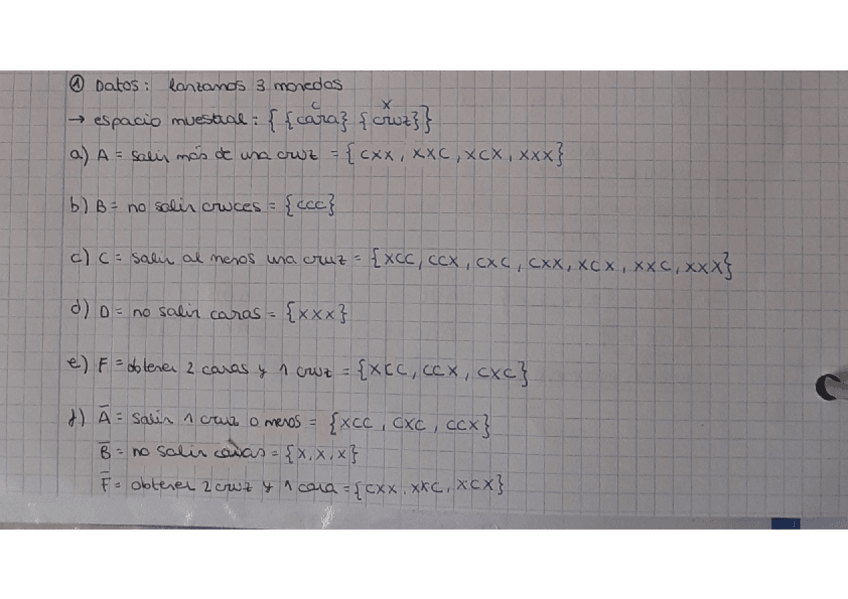 ① Datos: lanzamos 3 monedas
C X
→ espacio muestral: { {cara} {cruz}}
a) A = salir más de una cruz = {CXX, XXC, XCX, XXX}
b) B = no salir cruces = {CCC}
c) C = salir al menos una cruz = {XCC, CCX, CXC, CXX, XCX, XXC, XXX}
d) D = no salir caras = {XXX}
e) F = obtener 2 caras y 1 cruz = {XCC, CCX, CXC}
f) A̅ = salir 1 cruz o menos = {XCC, CXC, CCX}
B̅ = no salir caras = {X, X, X}
F̅ = obtener 2 cruz y 1 cara = {CXX, XXC, XCX}